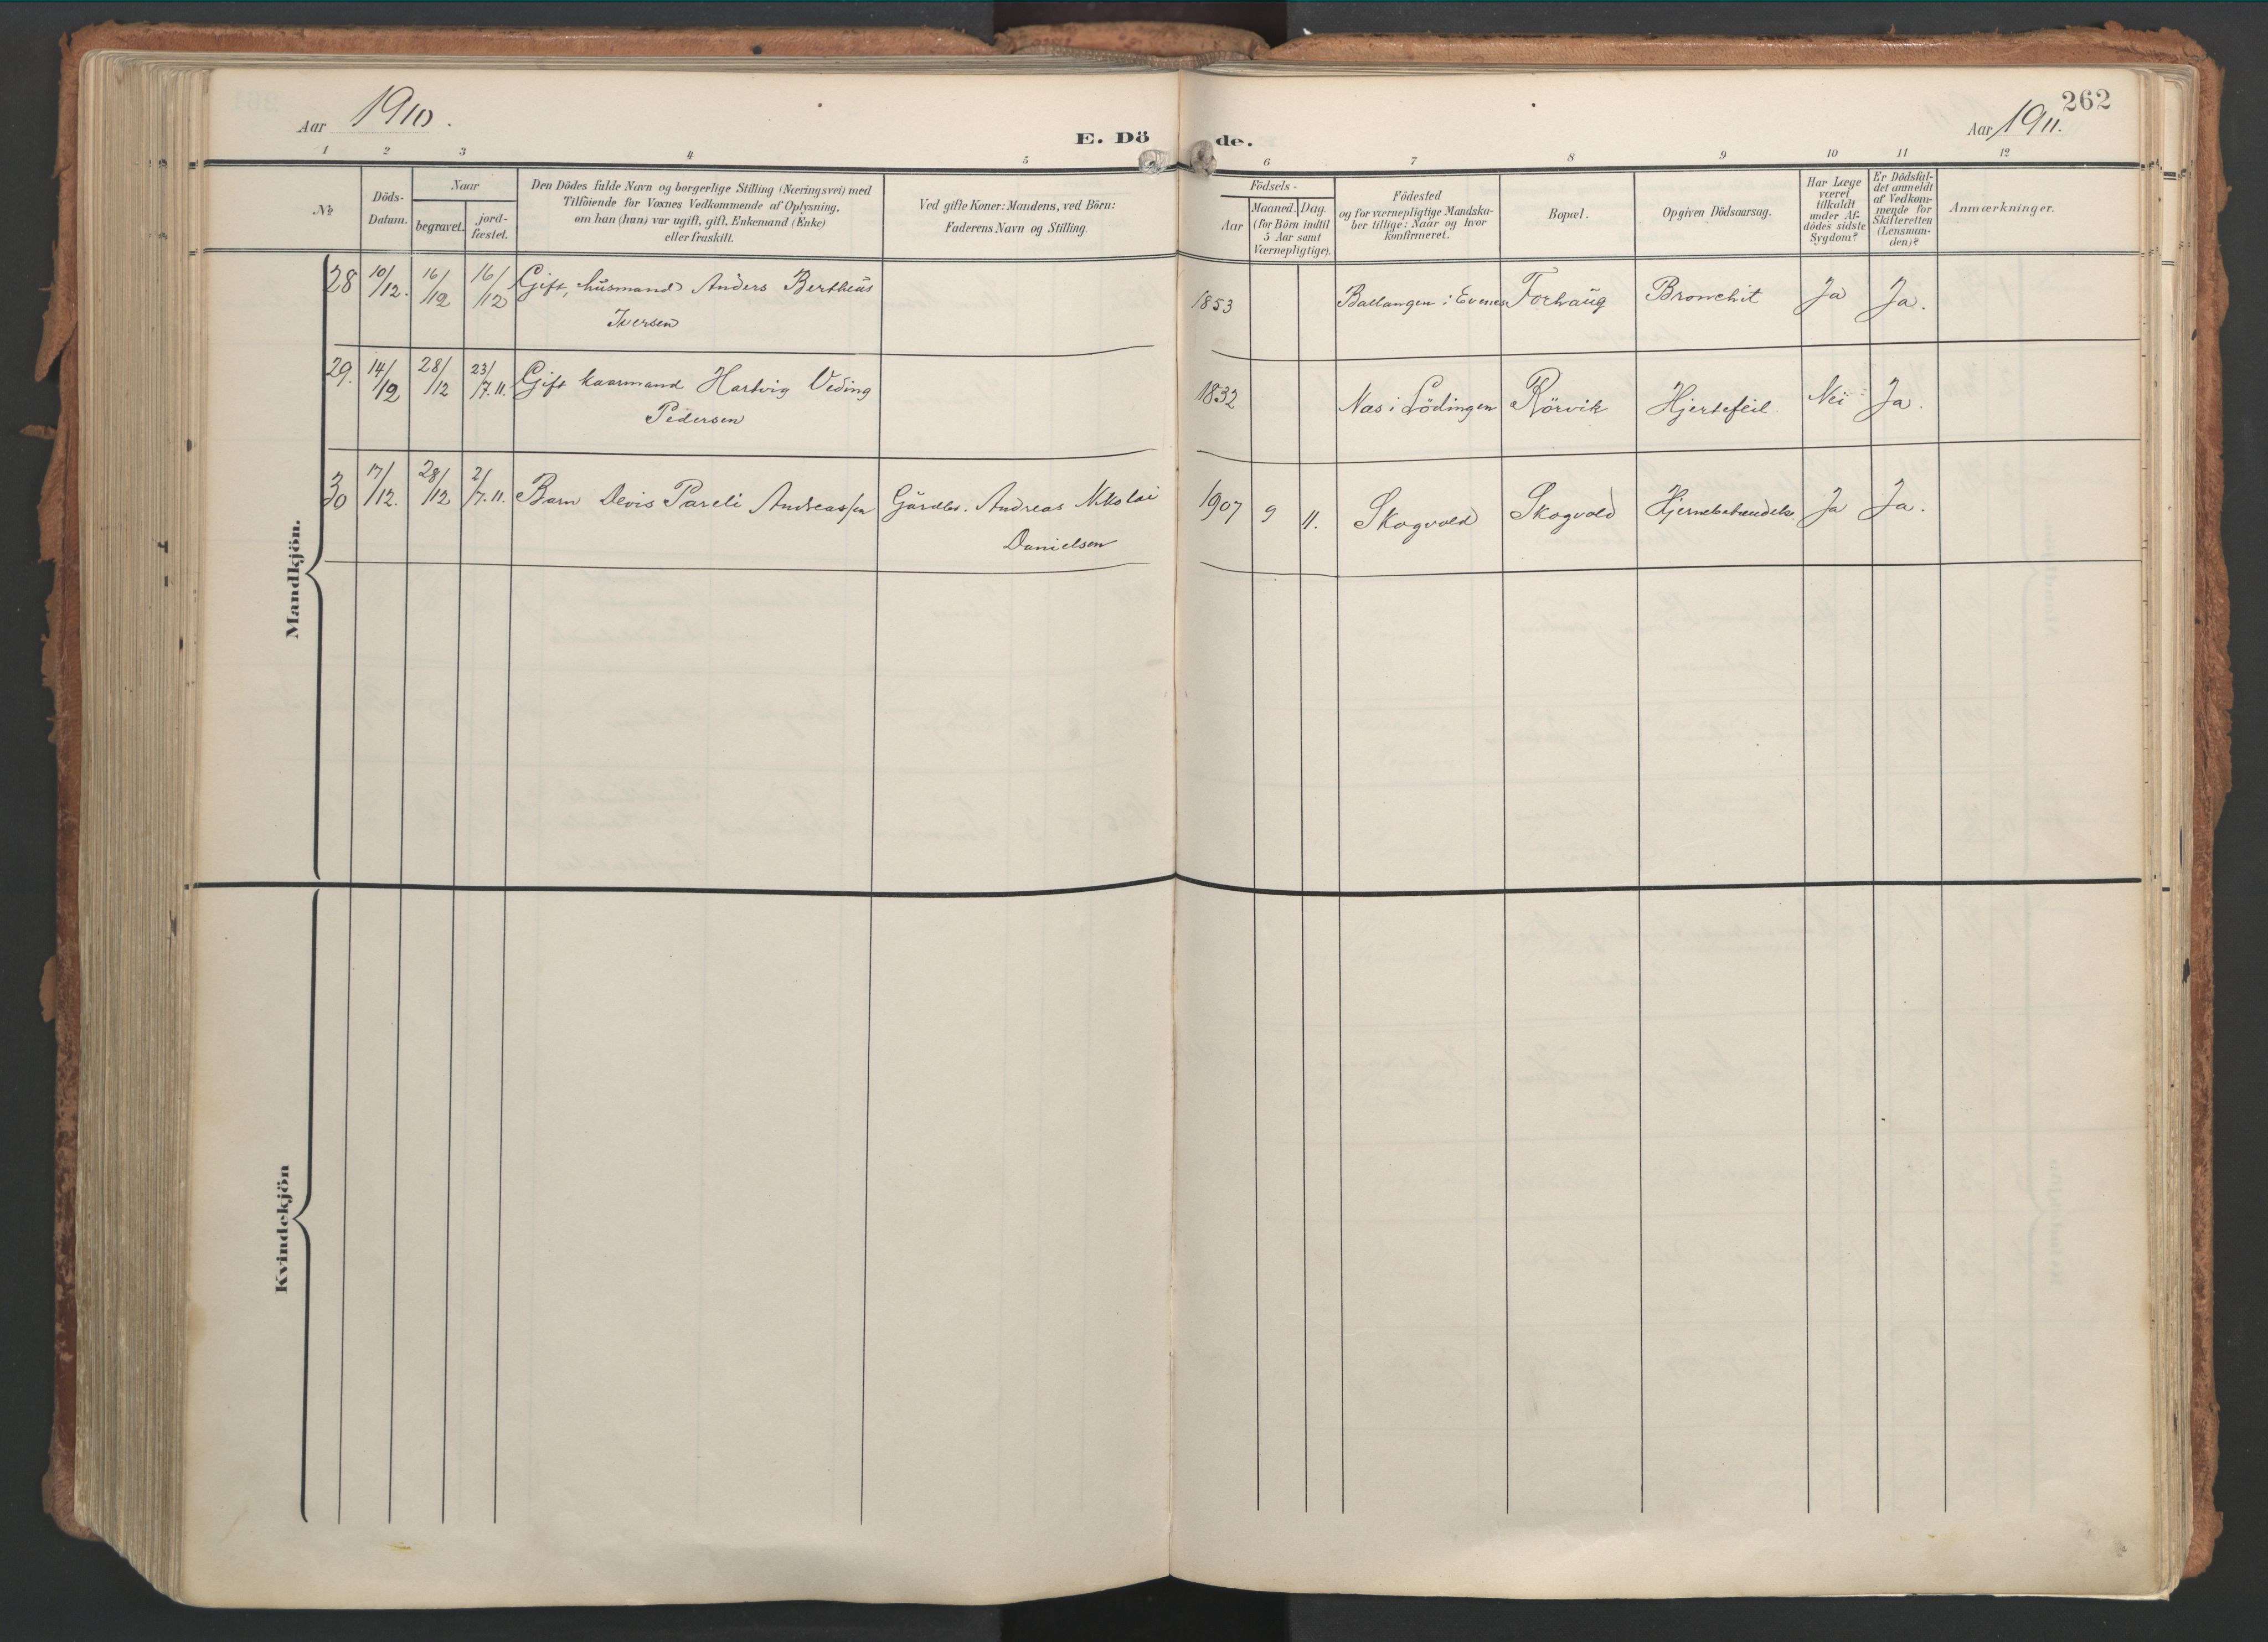 262
Aar 1910.
Aar 1911.
E. Dö de.
1 2 3 4 5 6 7 8 9 10 11 12
No
Döds-
Datum.
Naar
begravet.
jord-
fæstet.
Den Dödes fulde Navn og borgerlige Stilling (Næringsvei) med
Tilföiende for Voxnes Vedkommende af Oplysning,
om han (hun) var ugift, gift, Enkemand (Enke)
eller fraskilt.
Ved gifte Koner: Mandens, ved Börn:
Faderens Navn og Stilling.
Födsels-
Aar
Maaned. Dag.
(for Börn indtil
5 Aar samt
Værnepligtige).
Födested
og for værnepligtige Mandska-
ber tillige: Naar og hvor
konfirmeret.
Bopæl.
Opgiven Dödsaarsag.
Har Læge
været
tilkaldt
under Af-
dödes sidste
Sygdom?
Er Dödsfal-
det anmeldt
af Vedkom-
mende for
Skifteretten
(Lensman-
den)?
Anmærkninger.
Mandkjön.
28 10/12. 16/12 16/12 Gift, husmand Anders Bertheus 1853 Ballangen i Evenes Forhaug Bronchit Ja Ja.
Iversen
29. 14/12 28/12 23/7.11. Gift kaarmand Hartvig Veding 1832 Næs i Lödingen Rörvik Hjertefeil. Nei Ja.
Pedersen
30 17/12. 28/12 2/7.11. Barn Devis Pareli Andreassen Gårdbr. Andreas Nikolai 1907 9 11. Skogvold Skogvold Hjernebetændelse. Ja Ja.
Danielsen
Kvindekjön